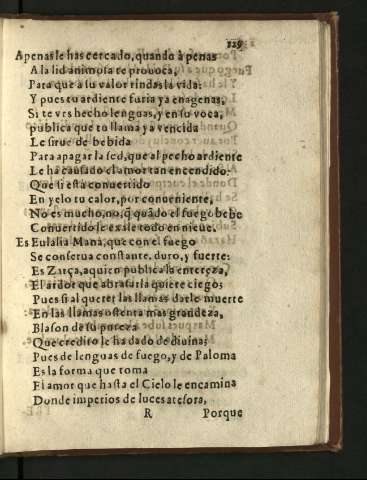 129
Apenas le has cercado, quando à penas
A la lid animosa te prouoca,
Para que a su valor rindas la vida:
Y pues tu ardiente furia ya enagenas,
Si te vès hecho lenguas, y en su voca,
publica que tu llama ya vencida
Le sirue de bebida
Para apagar la sed, que al pecho ardiente
Le ha causado el amor tan encendido.
Que si està conuertido
En yelo tu calor, por conueniente,
No es mucho, no, q̃ quãdo el fuego bebe
Conuertido le exale todo en nieue.
Es Eulalia Manà, que con el fuego
Se conserua constante, duro, y fuerte:
Es Zarça, aquien publica la entereza,
El ardor que abrasarla quiere ciego;
Pues si al querer las llamas darle muerte
En las llamas ostenta mas grandeza,
Blason de su pureza
Que credito le ha dado de diuina;
Pues de lenguas de fuego, y de Paloma
Es la forma que toma
El amor que hasta el Cielo le encamina
Donde imperios de luces atesora,
R Porque